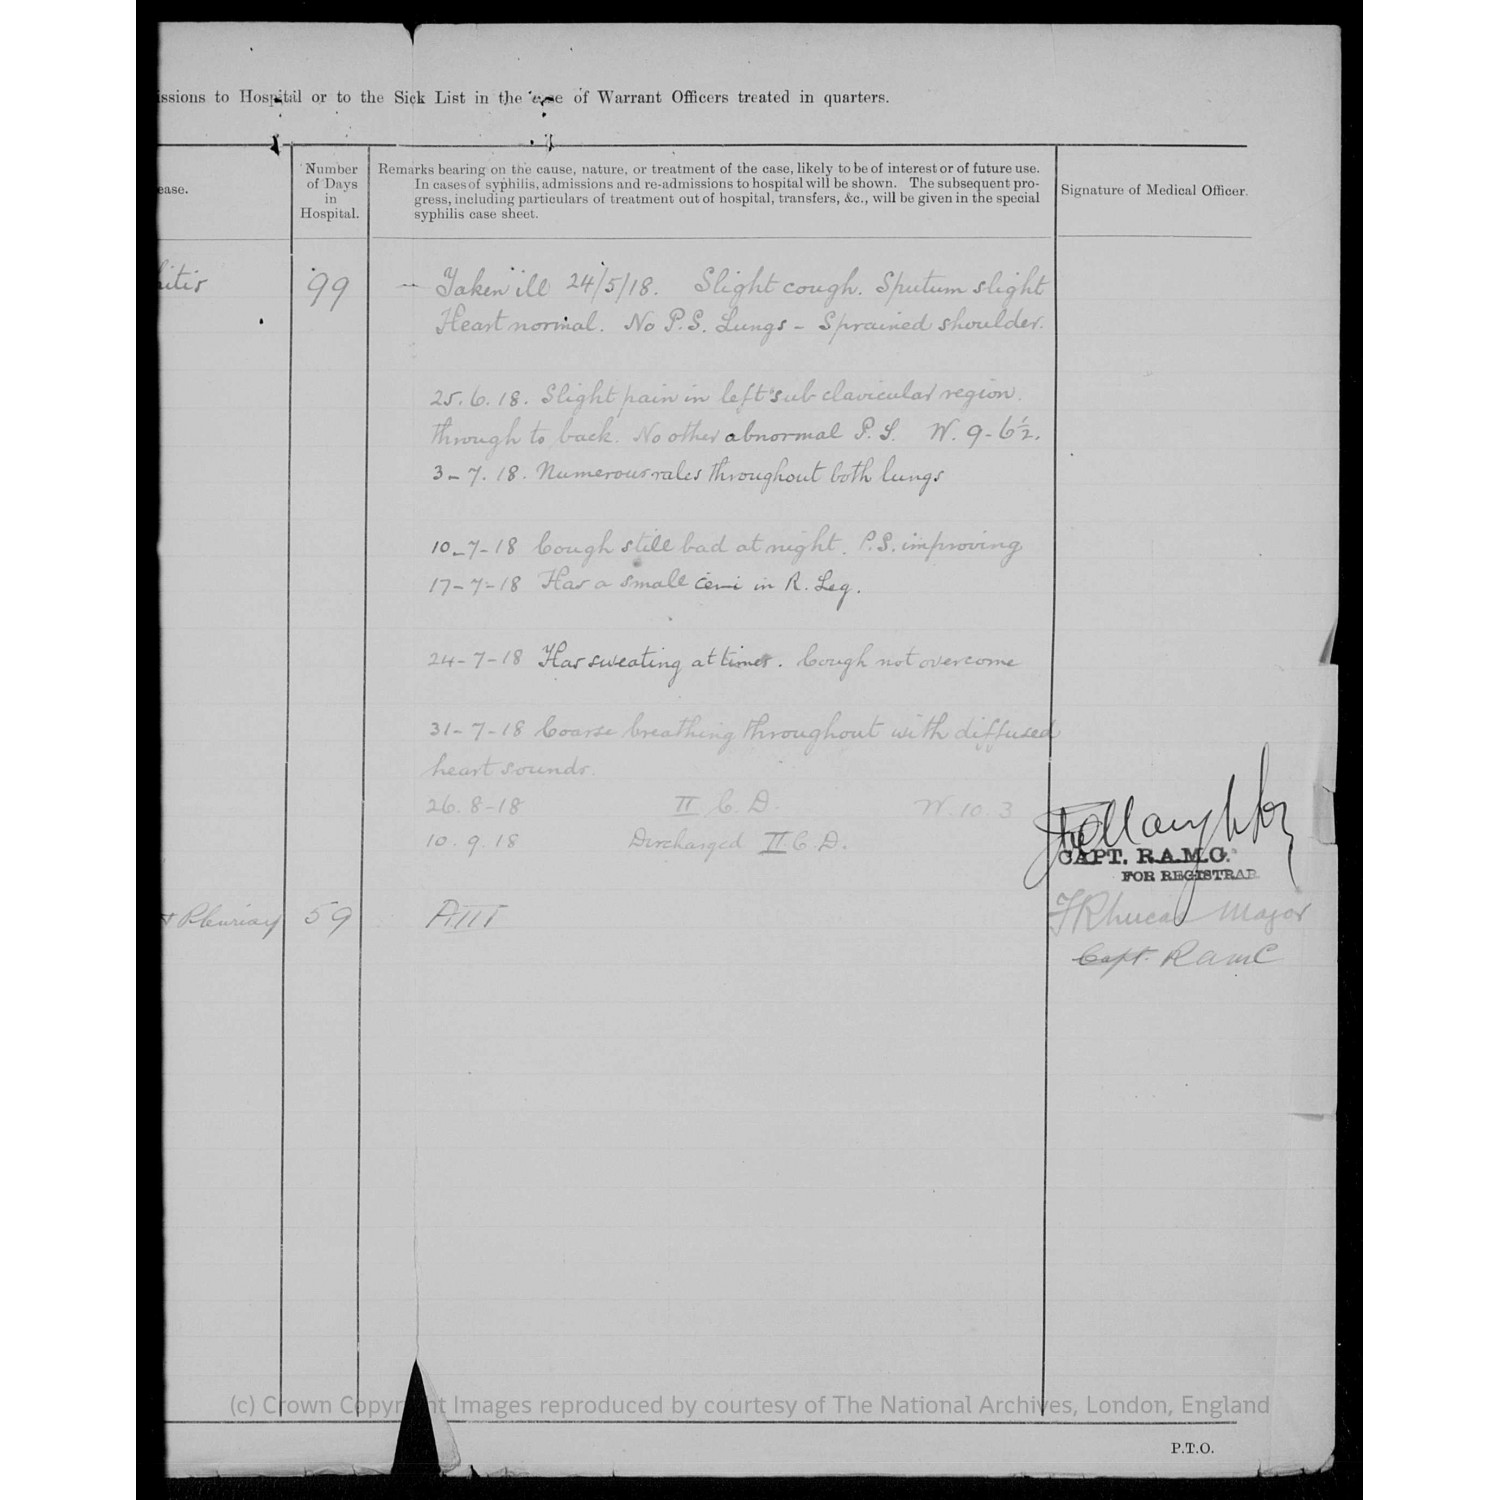 issions to Hospital or to the Sick List in the case of Warrant Officers treated in quarters.
ease.
Number of Days in Hospital.
Remarks bearing on the cause, nature, or treatment of the case, likely to be of interest or of future use.
In cases of syphilis, admissions and re-admissions to hospital will be shown. The subsequent pro-
gress, including particulars of treatment out of hospital, transfers, &c., will be given in the special
syphilis case sheet.
Signature of Medical Officer.
hitis 99 — Taken ill 24/5/18. Slight cough. Sputum slight
Heart normal. No P.S. Lungs - Sprained shoulder.
25.6.18. Slight pain in left sub clavicular region.
through to back. No other abnormal P.S. W. 9-6½.
3-7.18. Numerous rales throughout both lungs
10-7-18 Cough still bad at night. P.S. improving
17-7-18 Has a small in R. Leg.
24-7-18 Has sweating at times. Cough not overcome
31-7-18 Coarse breathing throughout with diffused
heart sounds.
26.8-18 II C.D. W. 10.3
10.9.18 Discharged II.C.D.
CAPT. R.A.M.C.
FOR REGISTRAR
Pleurisy 59 AIII Major
Capt. RAMC
(c) Crown Copyright Images reproduced by courtesy of The National Archives, London, England
P.T.O.